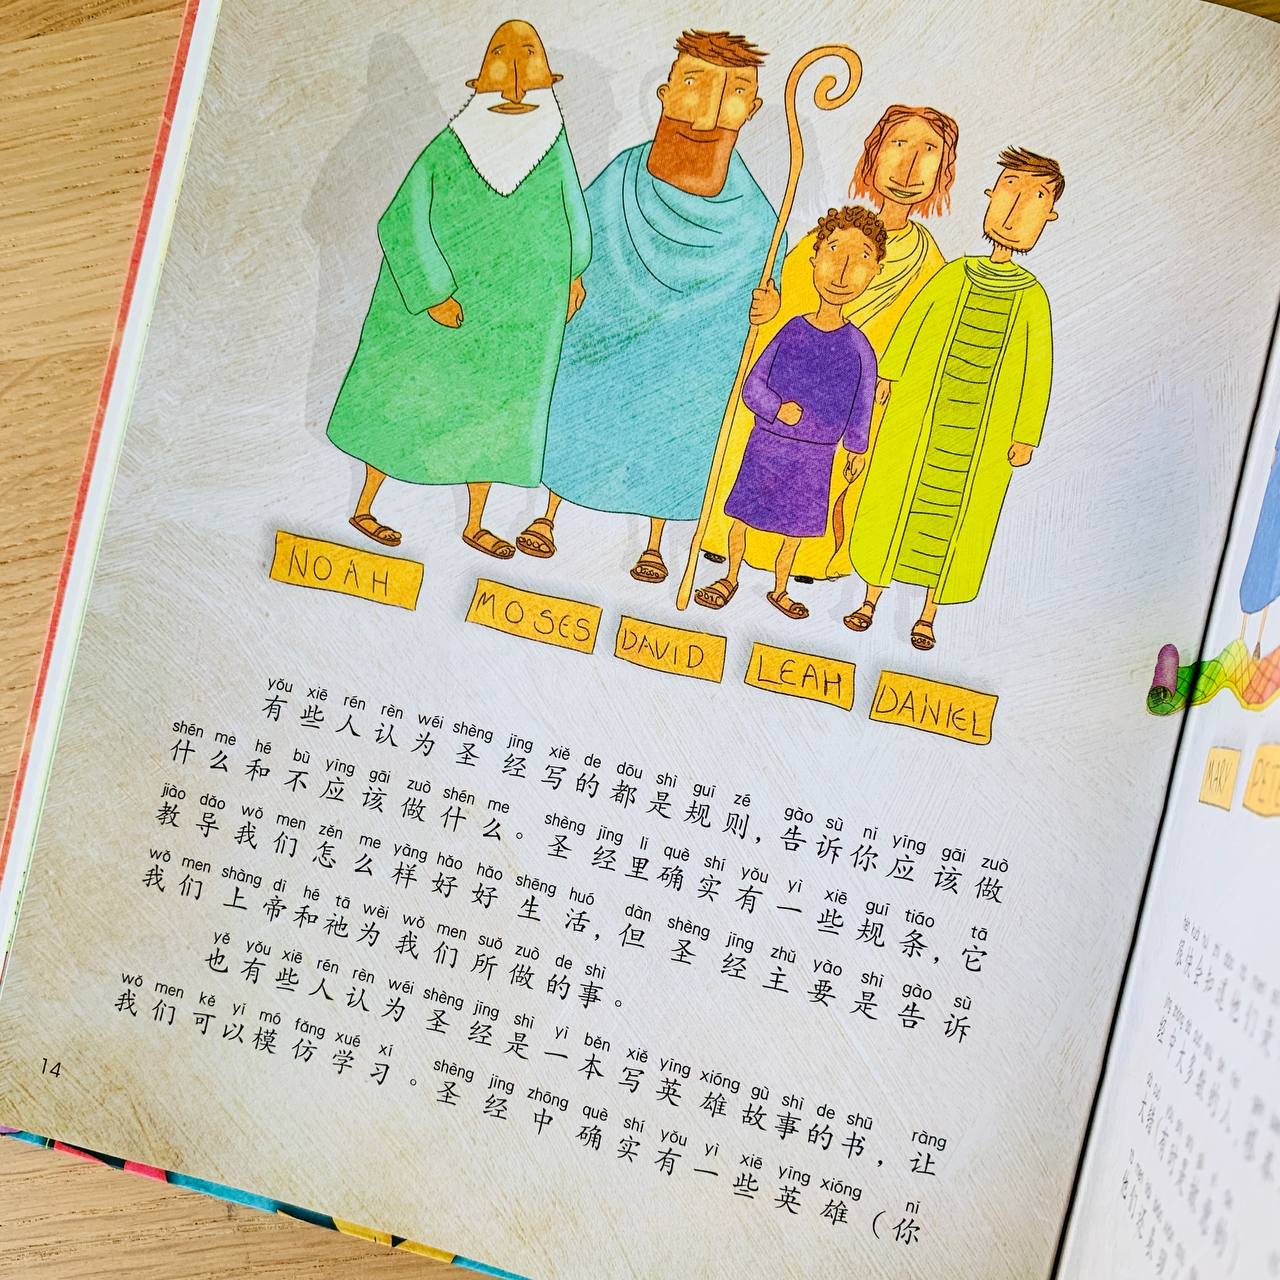 NOAH
MOSES
DAVID
LEAH
DANIEL
yǒu xiē rén rèn wéi shèng jīng xiě de dōu shì guī zé gào sù nǐ yīng gāi zuò
有些人认为圣经写的都是规则，告诉你应该做
shén me hé bù yīng gāi zuò shén me shèng jīng lǐ què shí yǒu yì xiē guī tiáo tā
什么和不应该做什么。圣经里确实有一些规条，它
jiào dǎo wǒ men zěn me yàng hǎo hǎo shēng huó dàn shèng jīng zhǔ yào shì gào sù
教导我们怎么样好好生活，但圣经主要是告诉
wǒ men shàng dì hé tā wèi wǒ men suǒ zuò de shì
我们上帝和祂为我们所做的事。
yě yǒu xiē rén rèn wéi shèng jīng shì yì běn xiě yīng xióng gù shì de shū ràng
也有些人认为圣经是一本写英雄故事的书，让
wǒ men kě yǐ mó fǎng xué xí shèng jīng zhōng què shí yǒu yì xiē yīng xióng nǐ
我们可以模仿学习。圣经中确实有一些英雄（你
14
MARY